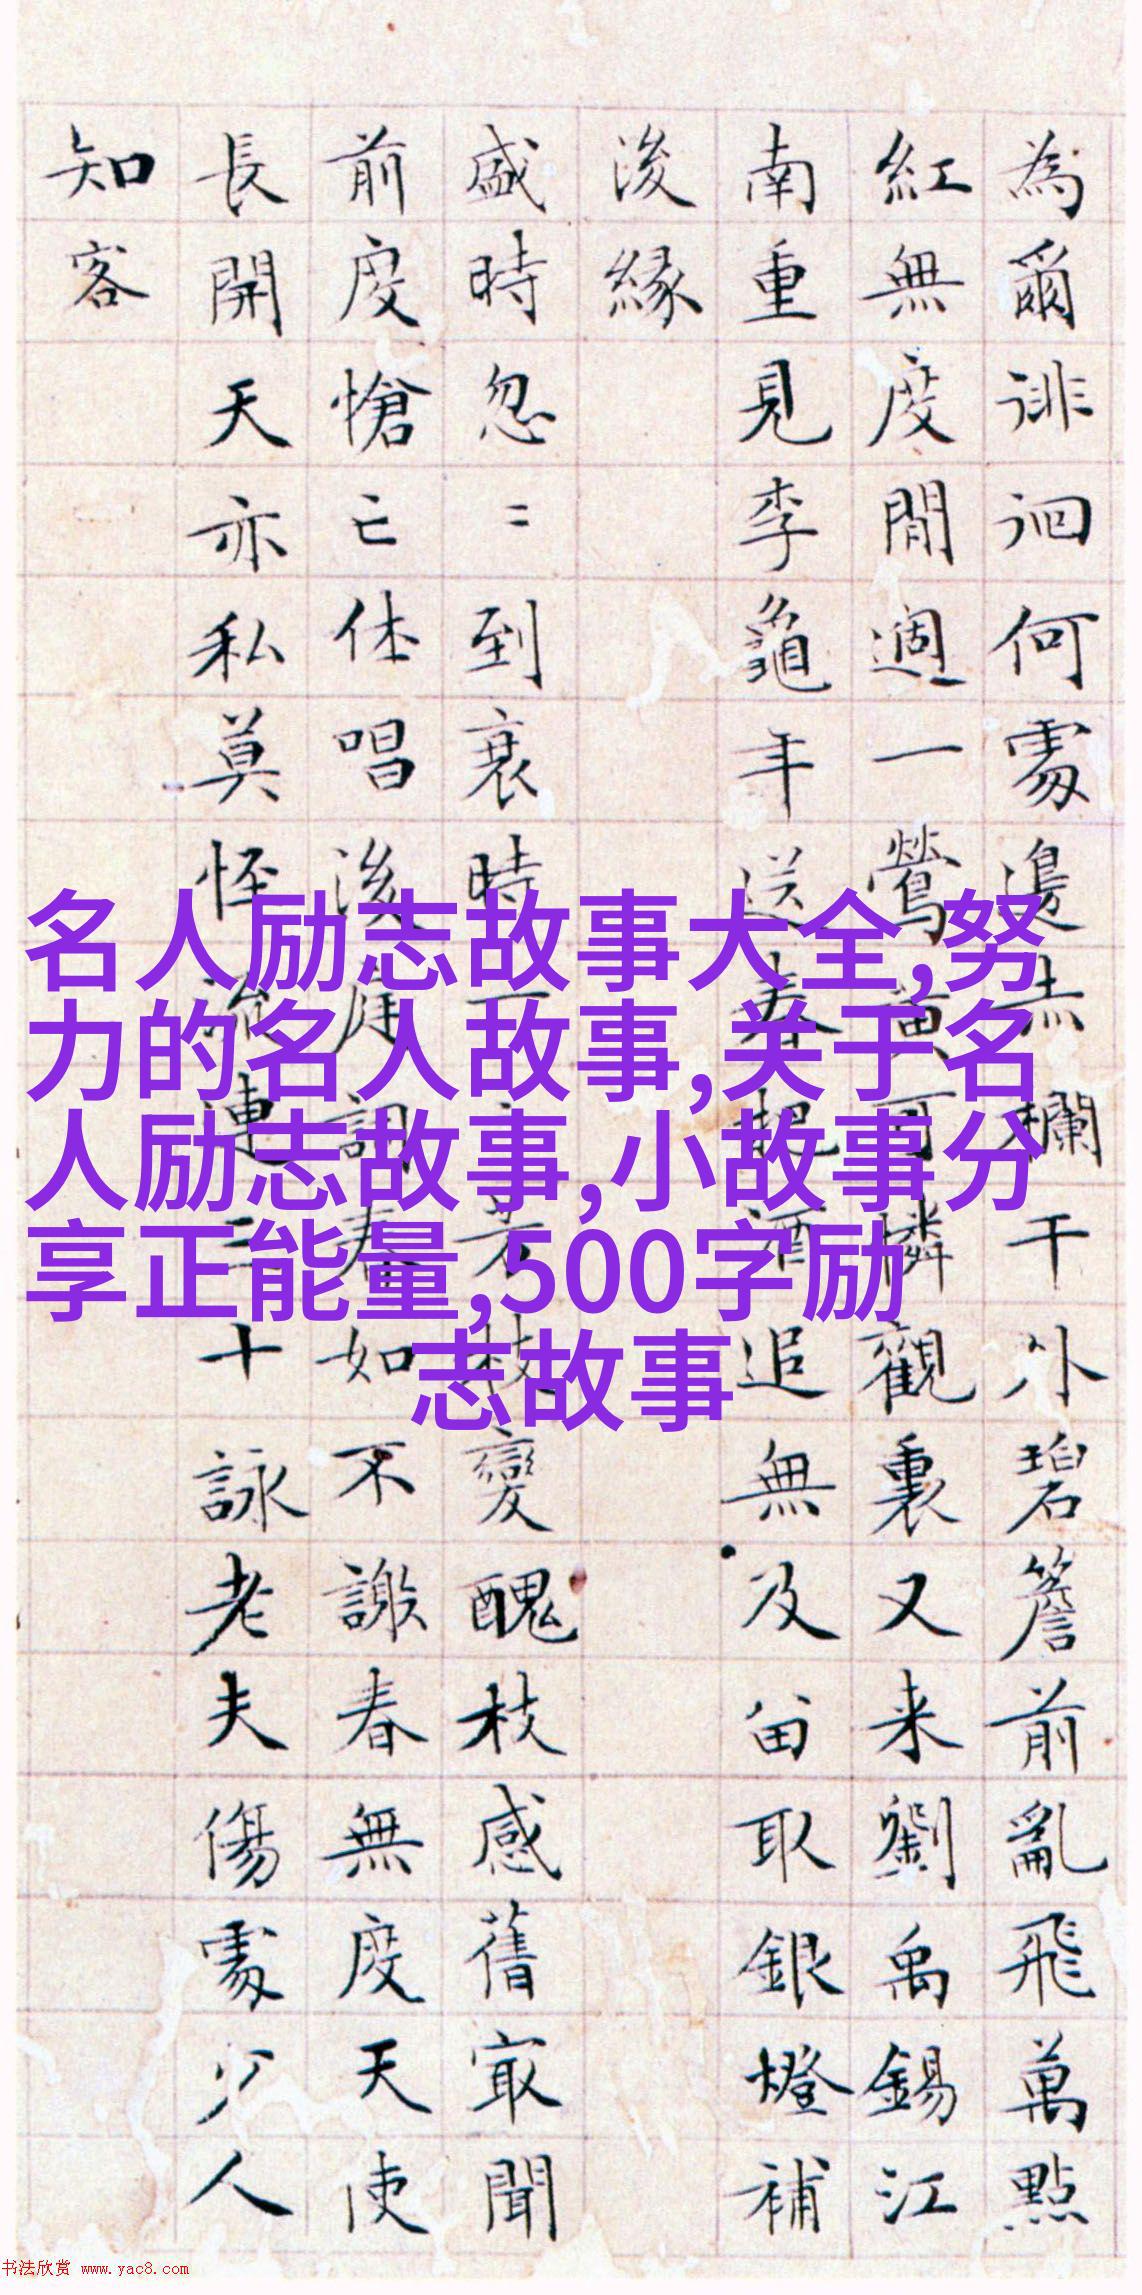 為爾徘徊何處邊赤欄干外碧簷前亂飛萬點
紅無度閒週一鶯黃可憐觀裏又来劉禹錫江
南重見李龜年送春把酒追無及畄取銀燈補
後緣
盛時忽〻到衰時一〻芳枝變醜枝感舊㝡聞
前度愴亡休唱後庭詞春如不謝春無度天使
長開天亦私莫怪流連三十詠老夫傷處少人
知客
名人励志故事大全,努
力的名人故事,关于名
人励志故事,小故事分
享正能量,500字励
志故事
书法欣赏 www.yac8.com